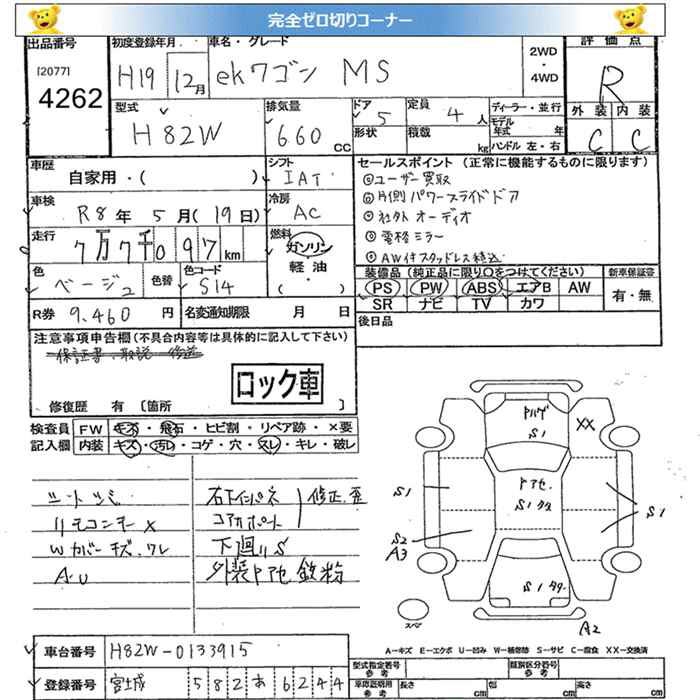 完全ゼロ切りコーナー
出品番号
[2077]
4262
初度登録年月
H19 12月
車名・グレード
ekワゴン MS
2WD
・
4WD
評価点
R
外装 内装
C C
型式
H82W
排気量
660 cc
ドア
5
形状
定員
4 人
積載
kg
ディーラー・並行
モデル
年式 年
ハンドル 左・右
車歴
自家用・( )
シフト
IAT
車検
R8年 5月(19日)
冷房
AC
走行
7万7千097km
燃料
ガソリン
軽油
・
( )
色
ベージュ
色替
色コード
S14
R券 9.460 円
名変通知期限 月 日
セールスポイント (正常に機能するものに限ります)
◎ユーザー買取
◎片側パワースライドドア
◎社外オーディオ
◎電格ミラー
◎AW付スタッドレス積込
装備品(純正品に限り○をつけてください)
PS PW ABS エアB AW
SR ナビ TV カワ
新車保証書
有・無
後日品
注意事項申告欄(不具合内容等は具体的に記入して下さい)
保証書、取説 後送
ロック車
修復歴 有 [箇所 ]
検査員
記入欄
FW キズ・飛石・ヒビ割・リペア跡・×要
内装 キズ・汚レ・コゲ・穴・スレ・キレ・破レ
シートシミ
リモコンキー×
Wカバーキズ、ワレ
A・U
右下インパネ
コアサポート
修正、歪
下廻りS
外装ドアセ 鉄粉
S1
XX
S1
S1
S2
A3
S1
A2
スペア
A−キズ E−エクボ U−凹み W−補修跡 S−サビ C−腐食 XX−交換済
車台番号 H82W-0133915
登録番号 宮城 582 あ 6244
型式指定番号
参考
類別区分番号
参考
車検証明用
参考
長さ cm
幅 cm
高さ cm